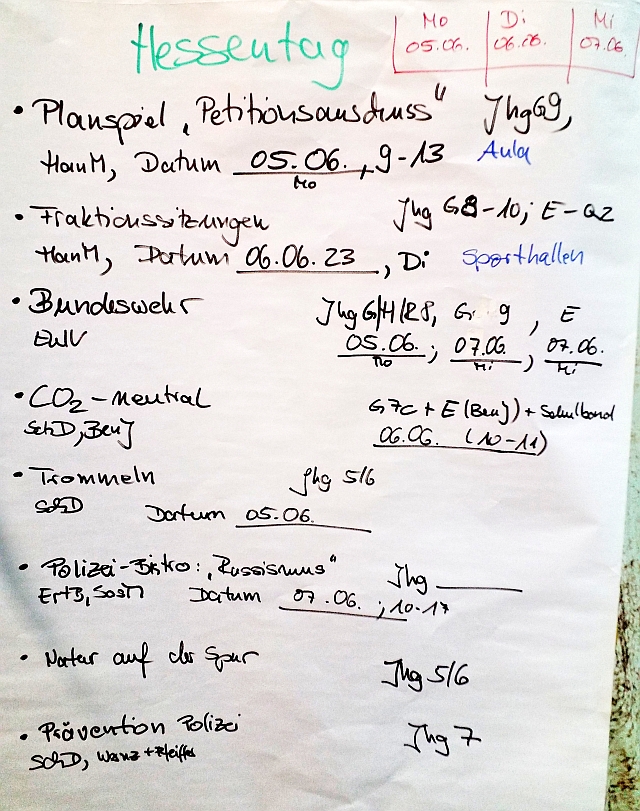 Hessentag
Mo Di Mi
05.06. 06.06. 07.06.
• Planspiel „Petitionsausschuss" Jhg G9,
HanM, Datum 05.06., 9-13 Aula
Mo
• Fraktionssitzungen Jhg G8-10; E-Q2
HanM, Datum 06.06.23, Di Sporthallen
• Bundeswehr Jhg G/H/R8, G 9, E
EWV 05.06.; 07.06., 07.06.
Mo Mi Mi
• CO2-neutral G7c + E (BenJ) + Schulband
SchD, BenJ 06.06. (10-11)
• Trommeln Jhg 5/6
SchD Datum 05.06.
• Polizei-Bistro: „Rassismus" Jhg
ErtB, Datum 07.06.; 10-17
• Natur auf der Spur Jhg 5/6
• Prävention Polizei Jhg 7
SchD, Wanz + Pfeiffer